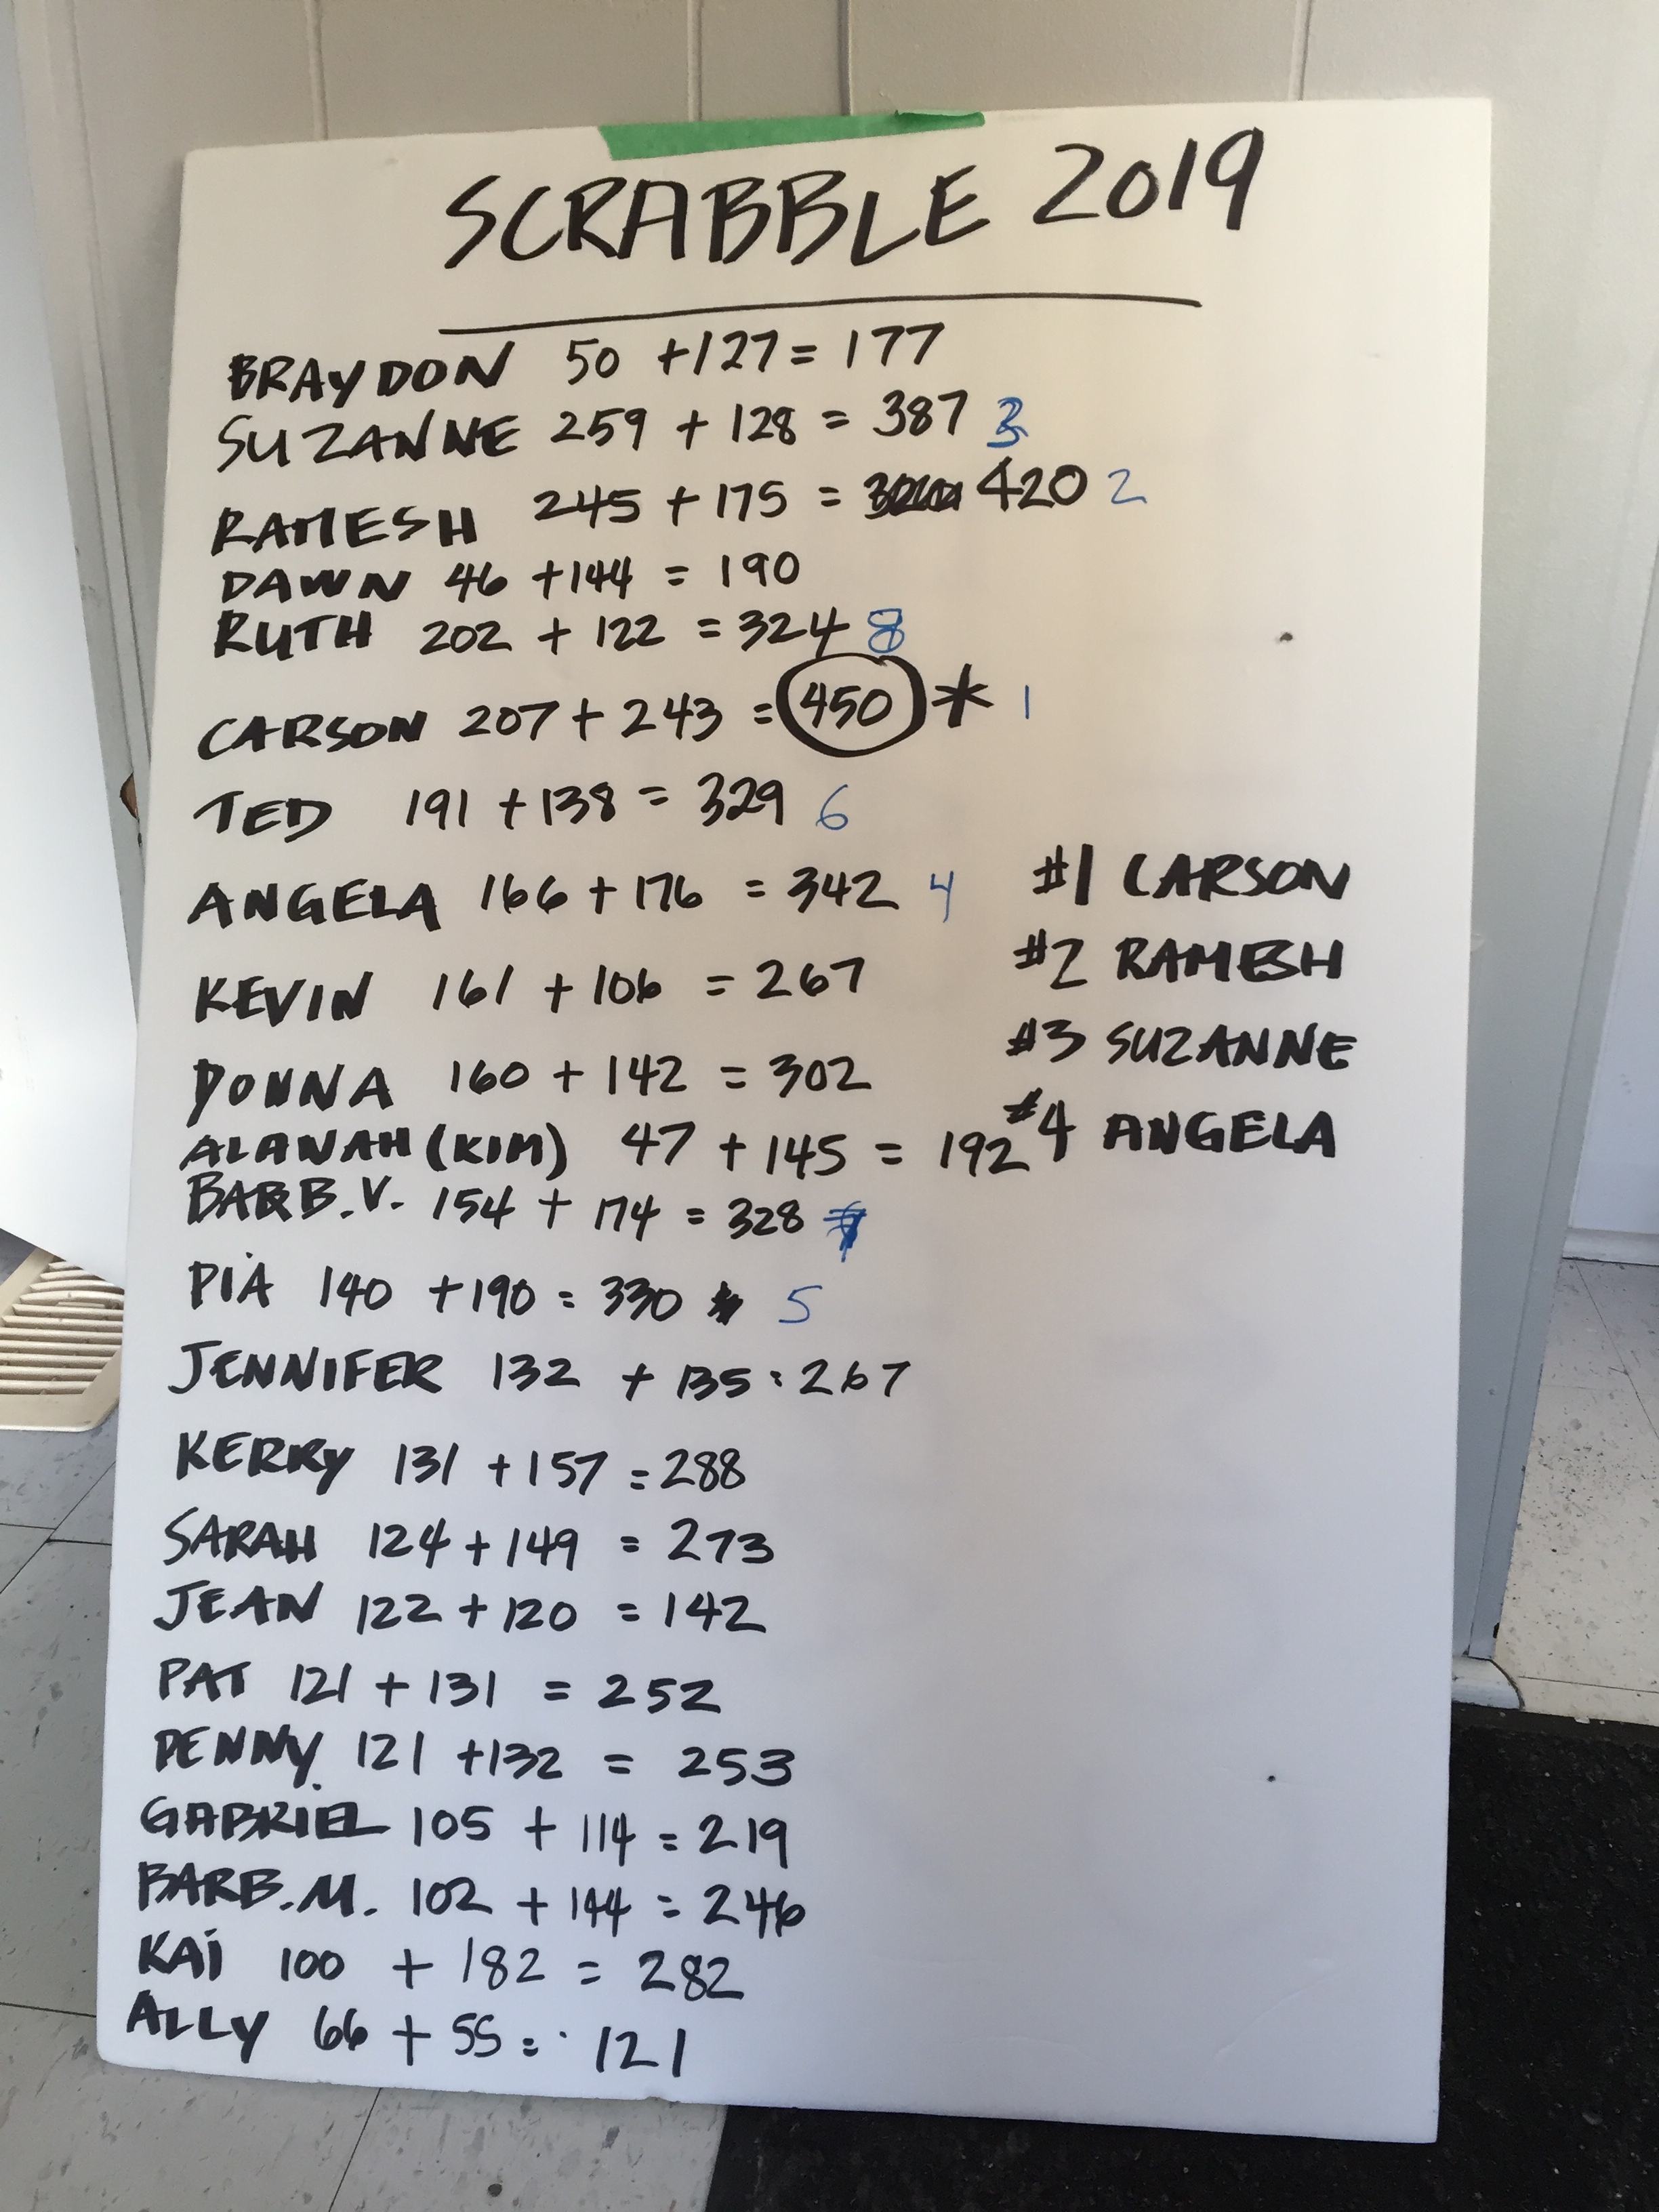 SCRABBLE 2019
BRAYDON 50 +127 = 177
SUZANNE 259 + 128 = 387 3
RAMESH 245 + 175 = 420 2
DAWN 46 +144 = 190
RUTH 202 + 122 = 324 8
CARSON 207 + 243 = 450 * 1
TED 191 + 138 = 329 6
ANGELA 166 + 176 = 342 4
KEVIN 161 + 106 = 267
DONNA 160 + 142 = 302
ALANAH (KIM) 47 + 145 = 192
BARB.V. 154 + 174 = 328 7
PIA 140 +190 = 330 5
JENNIFER 132 + 135 = 267
KERRY 131 + 157 = 288
SARAH 124 + 149 = 273
JEAN 122 + 120 = 142
PAT 121 + 131 = 252
PENNY 121 +132 = 253
GABRIEL 105 + 114 = 219
BARB.M. 102 + 144 = 246
KAI 100 + 182 = 282
ALLY 66 + 55 = 121
#1 CARSON
#2 RAMESH
#3 SUZANNE
#4 ANGELA